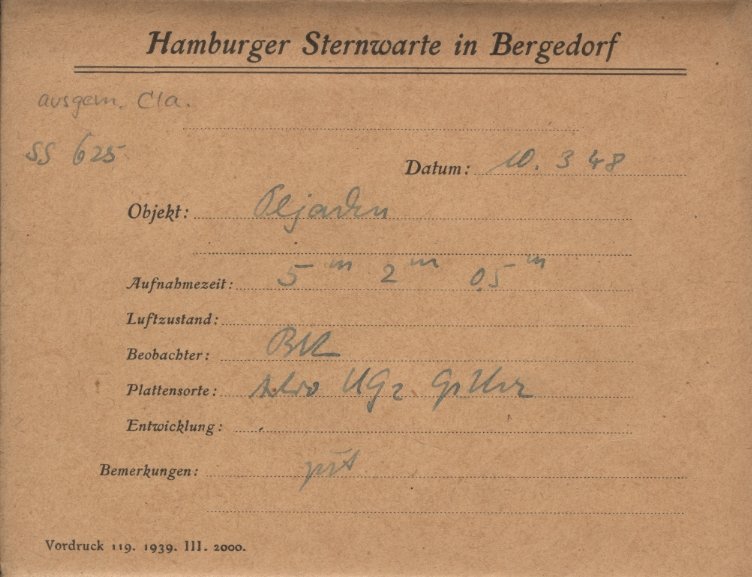 Hamburger Sternwarte in Bergedorf
ausgem. Cla.
SS 625
Datum: 10. 3 48
Objekt: Plejaden
Aufnahmezeit: 5 m 2 m 0,5 m
Luftzustand:
Beobachter:
Plattensorte: UG2
Entwicklung:
Bemerkungen: gut
Vordruck 119. 1939. III. 2000.